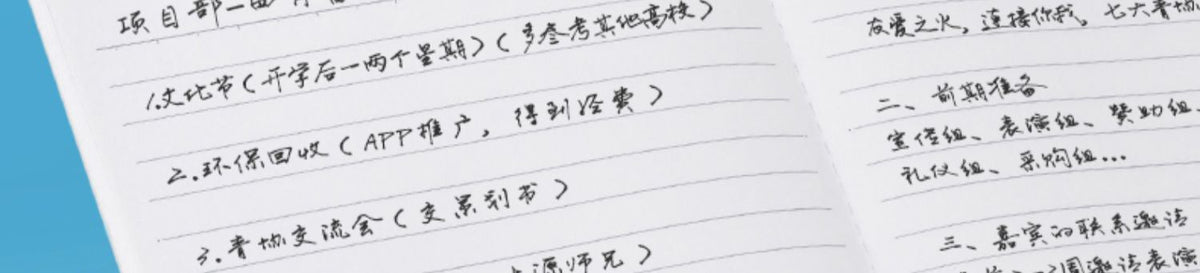 项目部一
1.文化节(开学后一两个星期)(多参考其他高校)
2.环保回收(APP推广,得到经费)
3.青协交流会(交策划书)
源师兄)
友爱之火,连接你我,七大青协
二、前期准备
宣传组、表演组、赞助组、
礼仪组、采购组...
三、嘉宾的联系邀请
周邀请表演